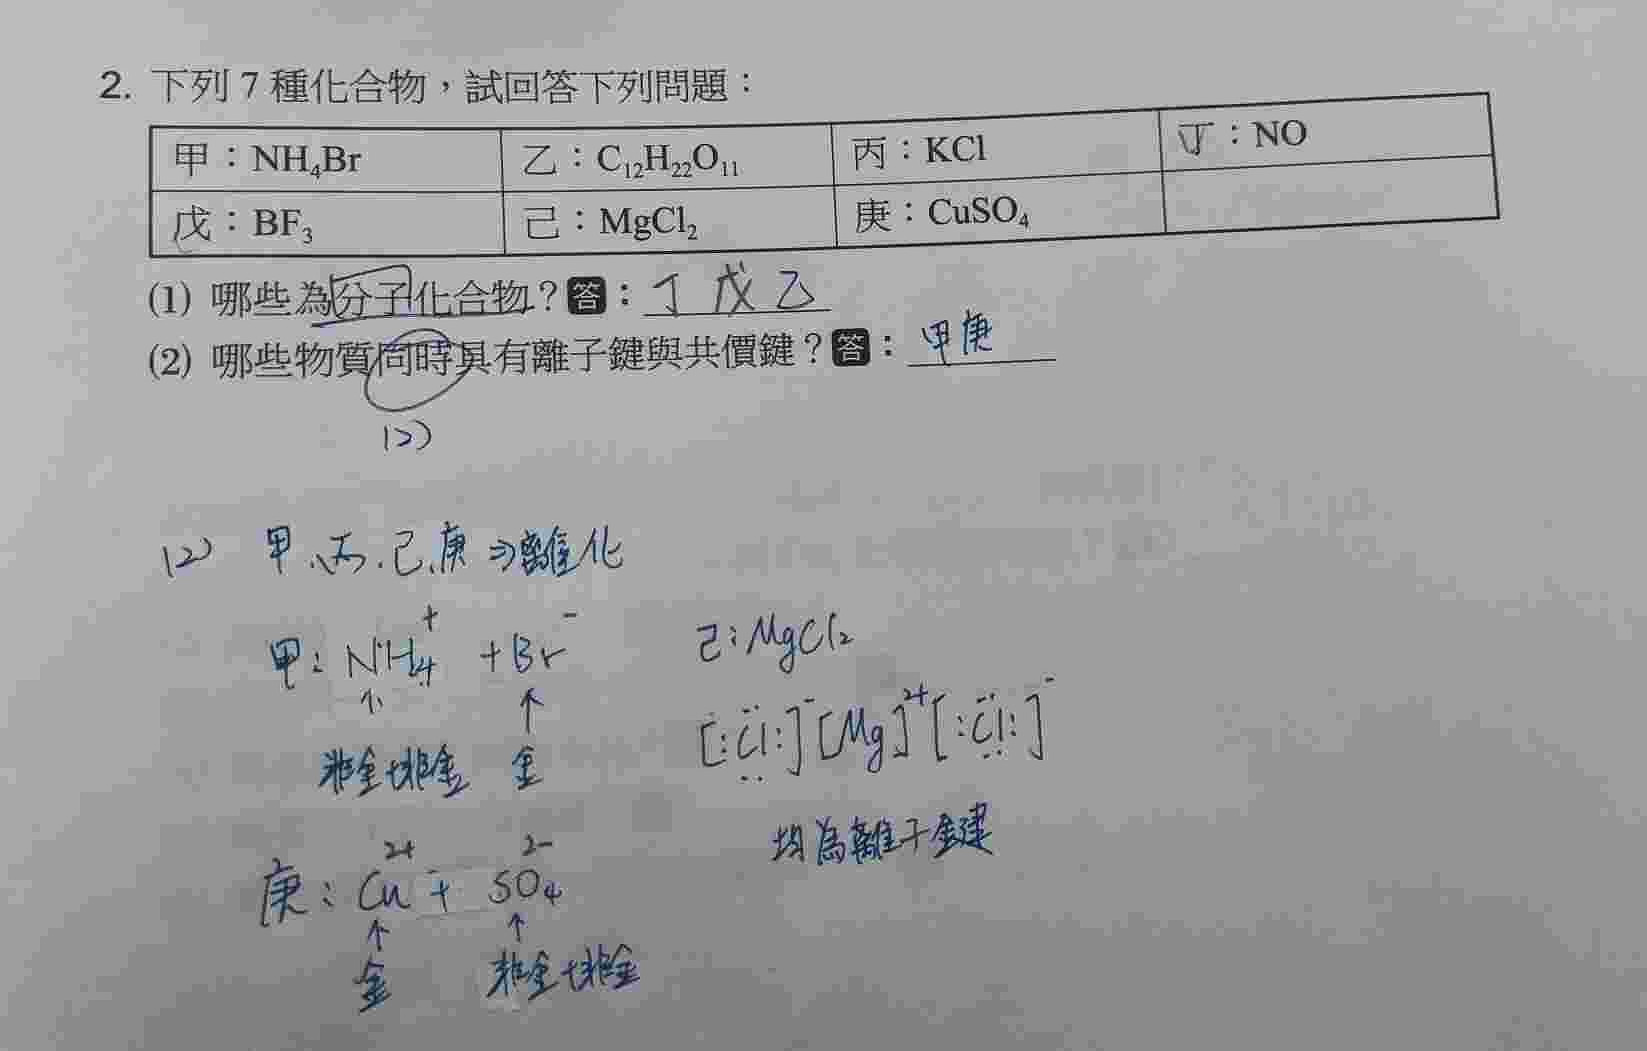 2. 下列 7 種化合物，試回答下列問題：
甲：NH₄Br 乙：C₁₂H₂₂O₁₁ 丙：KCl 丁：NO
戊：BF₃ 己：MgCl₂ 庚：CuSO₄
(1) 哪些為分子化合物？答：丁 戊 乙
(2) 哪些物質同時具有離子鍵與共價鍵？答：甲庚
(2)
(2) 甲、丙、己、庚 ⇒離化
甲：NH₄⁺ + Br⁻
↑ ↑
非金+非金 金
己：MgCl₂
[:C̈l:]⁻[Mg]²⁺[:C̈l:]⁻
均為離子鍵
庚：Cu²⁺ + SO₄²⁻
↑ ↑
金 非金+非金